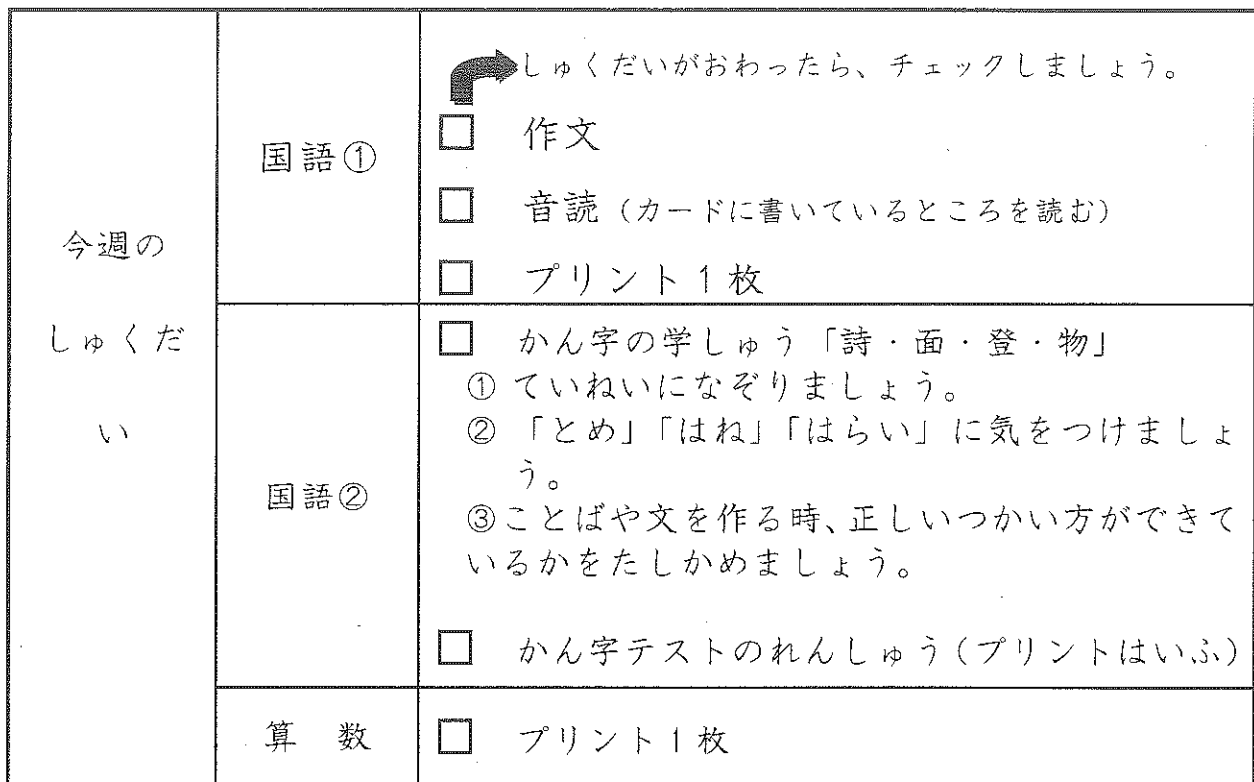 今週の
しゅくだ
い
国語①
しゅくだいがおわったら、チェックしましょう。
作文
音読（カードに書いているところを読む）
プリント1枚
国語②
かん字の学しゅう「詩・面・登・物」
① ていねいになぞりましょう。
② 「とめ」「はね」「はらい」に気をつけましょ
う。
③ことばや文を作る時、正しいつかい方ができて
いるかをたしかめましょう。
かん字テストのれんしゅう（プリントはいふ）
算 数
プリント1枚